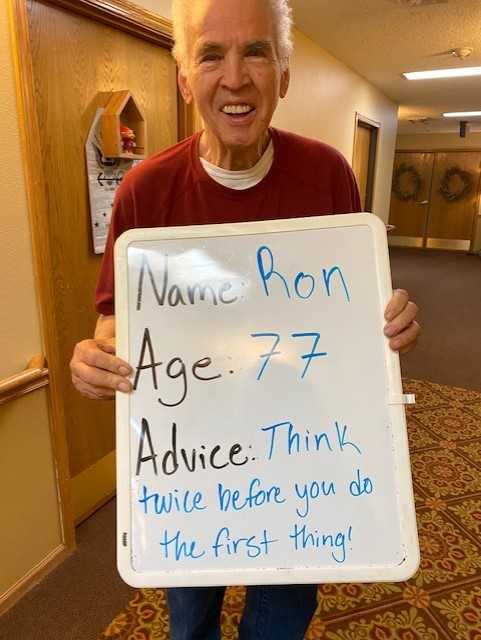 Name: Ron
Age: 77
Advice: Think
twice before you do
the first thing!